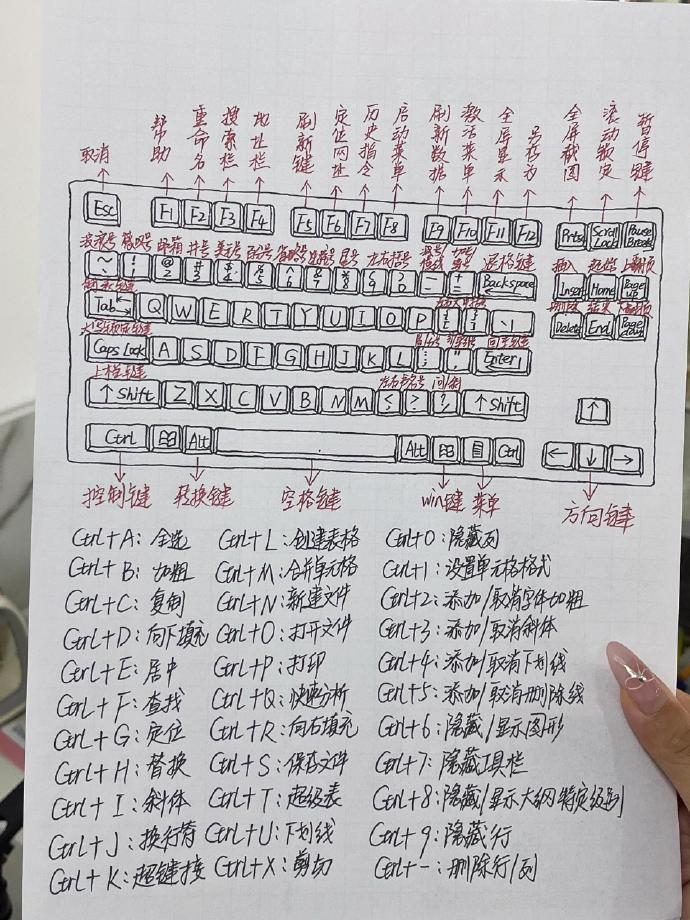 取消 帮助 重命名 搜索栏 地址栏 刷新键 定位网址 历史指令 启动菜单 刷新数据 激活菜单 全屏显示 另存为 全屏截图 滚动锁定 暂停键
Esc F1 F2 F3 F4 F5 F6 F7 F8 F9 F10 F11 F12 Prtsc Scroll Lock Pause Break
波浪号 感叹号 邮箱 井号 美元号 百分号 省略号 连接号 星号 左右括号 退格键 插入 起始 上翻页
~ ! @ 2 # 3 $ 4 % 5 ^ 6 & 7 * 8 ( 9 ) 0 — - + = Backspace Insert Home Page up
制表键 删除 结束 下翻页
Tab Q W E R T Y U I O P { [ } ] \ Delete End Page down
大写锁定键 冒分号 引号键 回车键
Caps Lock A S D F G H J K L : ; " ' Enter
上档键 左右书名号 问号
↑ Shift Z X C V B N M < > ? / ↑ Shift ↑
Ctrl Alt Alt Ctrl ← ↓ →
控制键 转换键 空格键 win键 菜单 方向键
Ctrl+A:全选 Ctrl+L:创建表格 Ctrl+0:隐藏列
Ctrl+B:加粗 Ctrl+M:合并单元格 Ctrl+1:设置单元格格式
Ctrl+C:复制 Ctrl+N:新建文件 Ctrl+2:添加/取消字体加粗
Ctrl+D:向下填充 Ctrl+O:打开文件 Ctrl+3:添加/取消斜体
Ctrl+E:居中 Ctrl+P:打印 Ctrl+4:添加/取消下划线
Ctrl+F:查找 Ctrl+Q:快速分析 Ctrl+5:添加/取消删除线
Ctrl+G:定位 Ctrl+R:向右填充 Ctrl+6:隐藏/显示图形
Ctrl+H:替换 Ctrl+S:保存文件 Ctrl+7:隐藏工具栏
Ctrl+I:斜体 Ctrl+T:超级表 Ctrl+8:隐藏/显示大纲特定级别
Ctrl+J:换行符 Ctrl+U:下划线 Ctrl+9:隐藏行
Ctrl+K:超键接 Ctrl+X:剪切 Ctrl+-:删除行/列